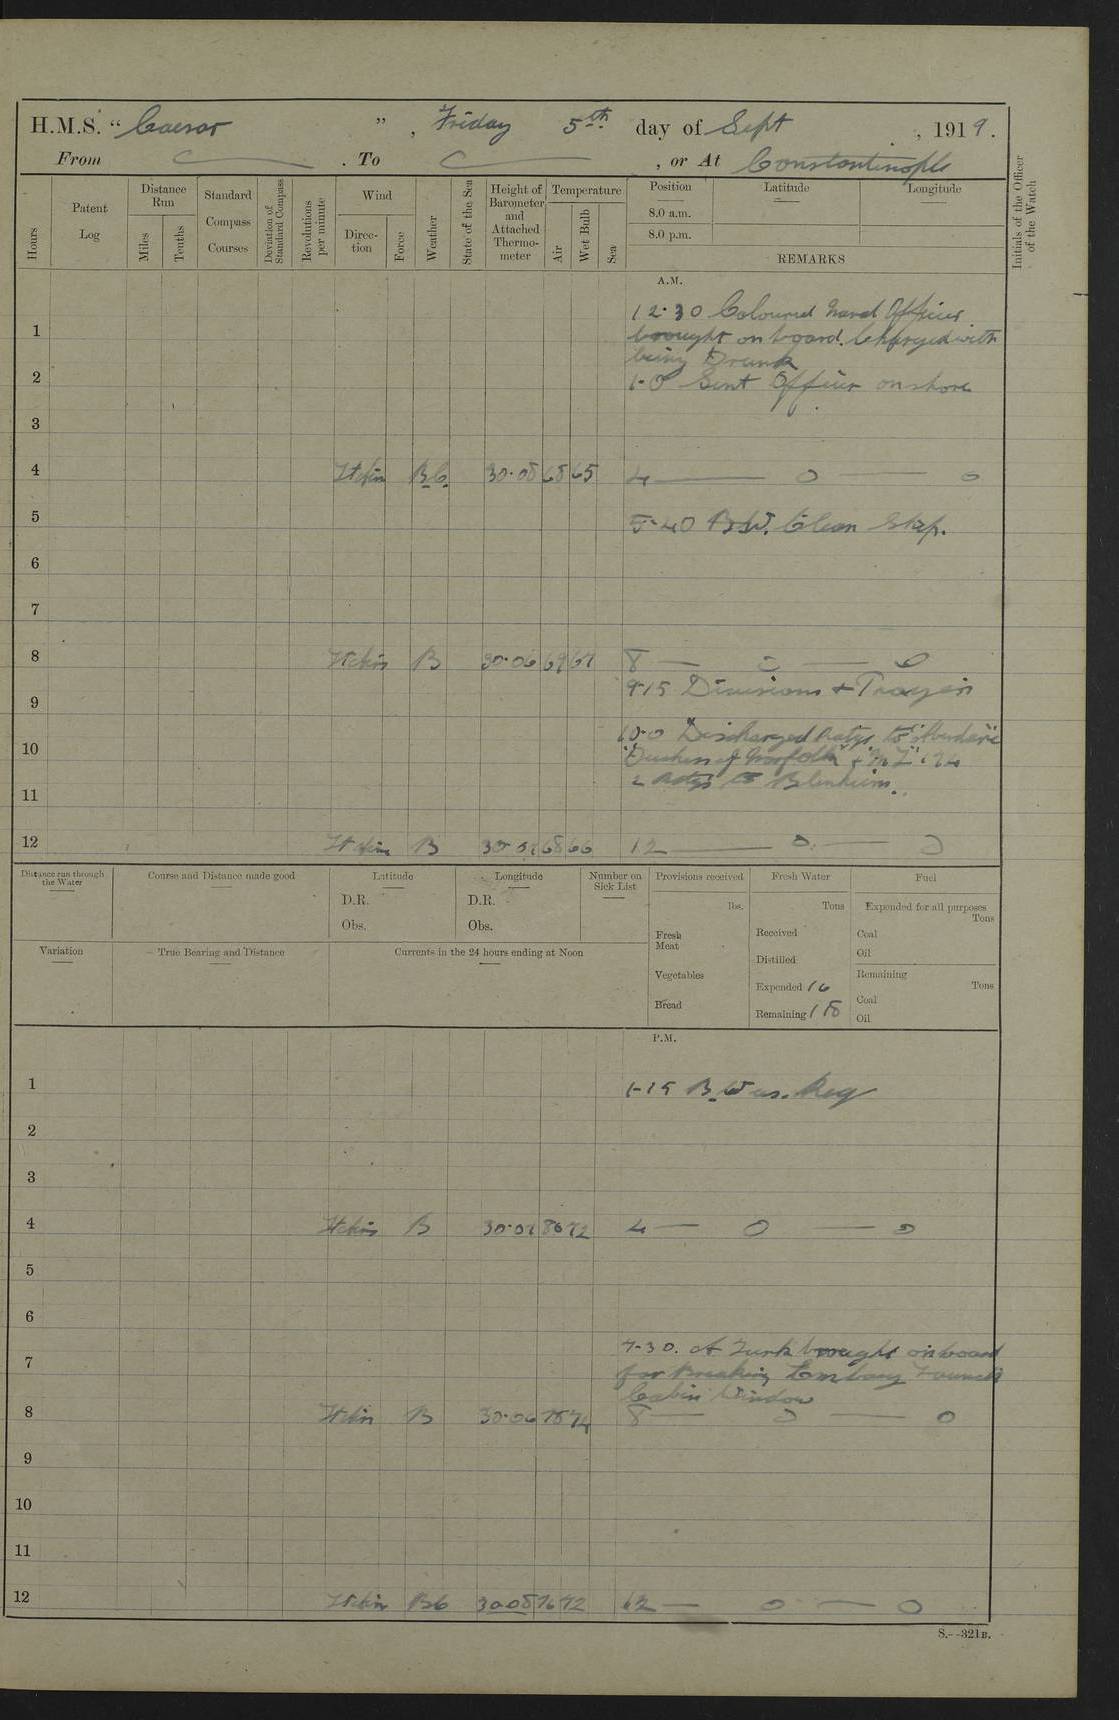 H.M.S. "Caesar", Friday 5th. day of Sept, 1919.
From . To , or At Constantinople
Initials of the Officer of the Watch
Hours
Patent Log
Distance Run
Miles
Tenths
Standard Compass Courses
Deviation of Standard Compass
Revolutions per minute
Wind
Direction
Force
Weather
State of the Sea
Height of Barometer and Attached Thermometer
Temperature
Air
Wet Bulb
Sea
Position Latitude Longitude
8.0 a.m.
8.0 p.m.
REMARKS
A.M.
12.30 Coloured Naval Officer
1 brought on board. Charged with
being Drunk
2 1-0 Sent Officer on shore
3
4 B.C. 30.08 68 65 4 — 0 — 0
5 5-40 B.W. Clean Ship.
6
7
8 B 30.06 8 — 0 — 0
9-15 Divisions + Prayers
9
10-0 Discharged Ratgs to "Aberdare"
10 "Duchess of Norfolk" + "ML" 194
2 Ratgs to Blenheim.
11
12 B 68 66 12 — 0 — 0
Distance run through the Water
Course and Distance made good
Latitude
D.R.
Obs.
Longitude
D.R.
Obs.
Number on Sick List
Provisions received
lbs.
Fresh Meat
Vegetables
Bread
Fresh Water
Tons
Received
Distilled
Expended 16
Remaining 118
Fuel
Expended for all purposes
Tons
Coal
Oil
Remaining
Tons
Coal
Oil
Variation
True Bearing and Distance
Currents in the 24 hours ending at Noon
P.M.
1 1-15 B.W as. Req
2
3
4 B 80 72 4 — 0 — 0
5
6
7-30. A Turk brought on board
7 for Breaking Embassy Launch
Cabin Window
8 B 30.06 78 74 8 — 0 — 0
9
10
11
12 BC 30.08 76 72 12 — 0 — 0
S.--321B.